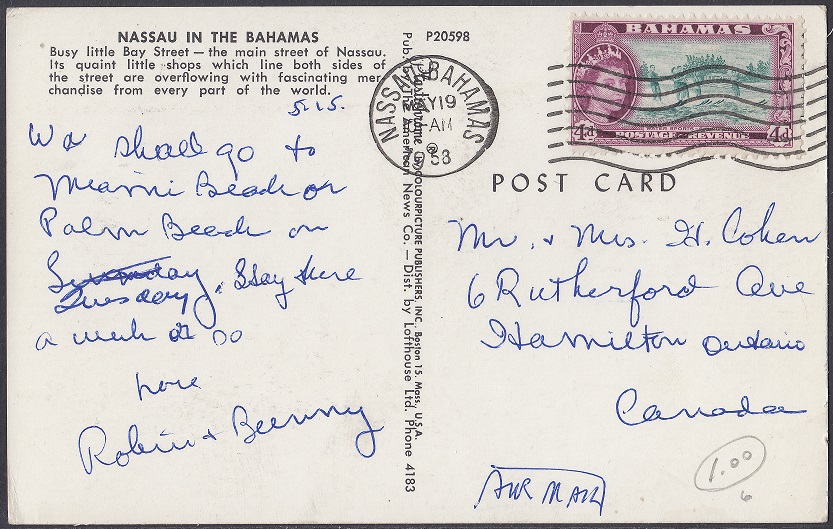 NASSAU IN THE BAHAMAS
Busy little Bay Street — the main street of Nassau.
Its quaint little shops which line both sides of
the street are overflowing with fascinating mer-
chandise from every part of the world.
5.15.
We shall go to
Miami Beach or
Palm Beach on
Tuesday, Stay there
a week or so
Love
Robin + Bunny
COLOURPICTURE PUBLISHERS, INC., Boston 15, Mass., U.S.A.
The American News Co. — Distr. by Lofthouse Ltd. Phone 4183
P20598
NASSAU BAHAMAS
MY19
-AM
58
BAHAMAS
4d POSTAGE & REVENUE 4d
POST CARD
Mr. + Mrs. H. Cohen
6 Rutherford Ave
Hamilton Ontario
Canada
AIR MAIL
1.00
6